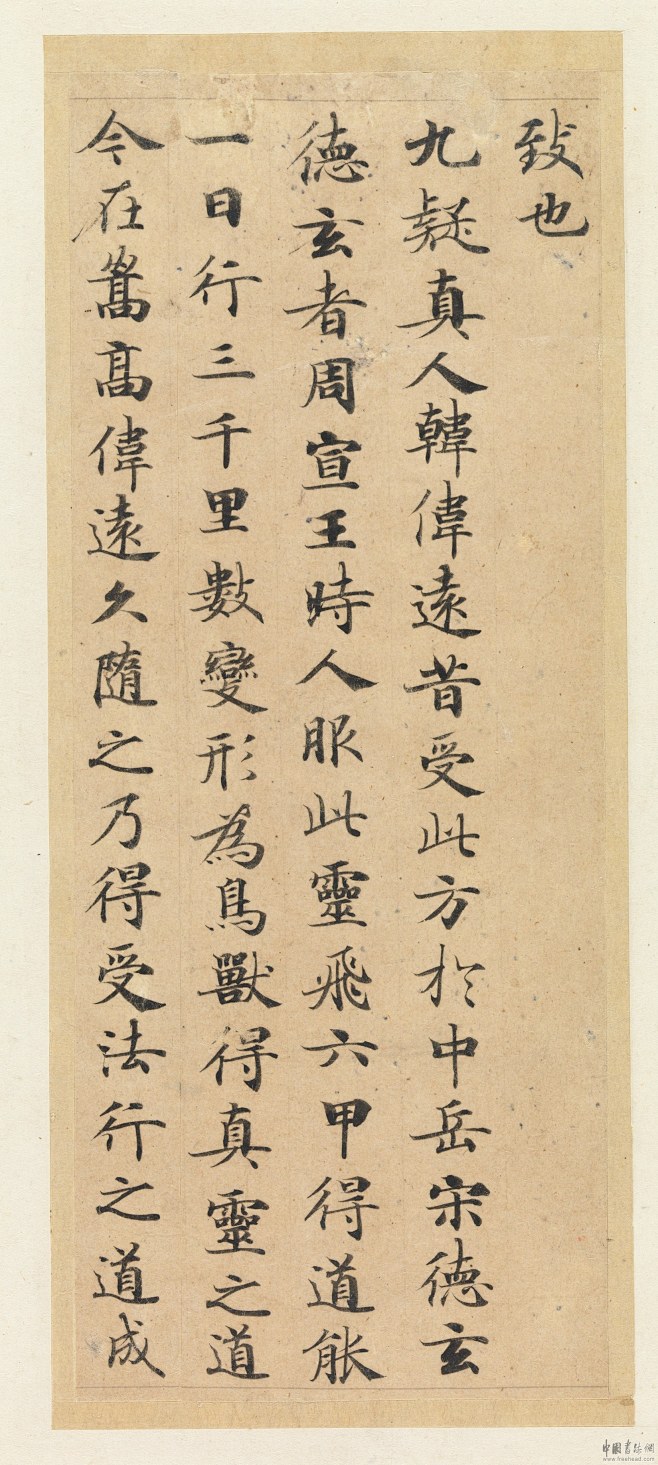 致也
九疑真人韓偉遠昔受此方於中岳宋德玄
德玄者周宣王時人服此靈飛六甲得道能
一日行三千里數變形為鳥獸得真靈之道
今在嵩高偉遠久隨之乃得受法行之道成
中国书法网
www.freehead.com